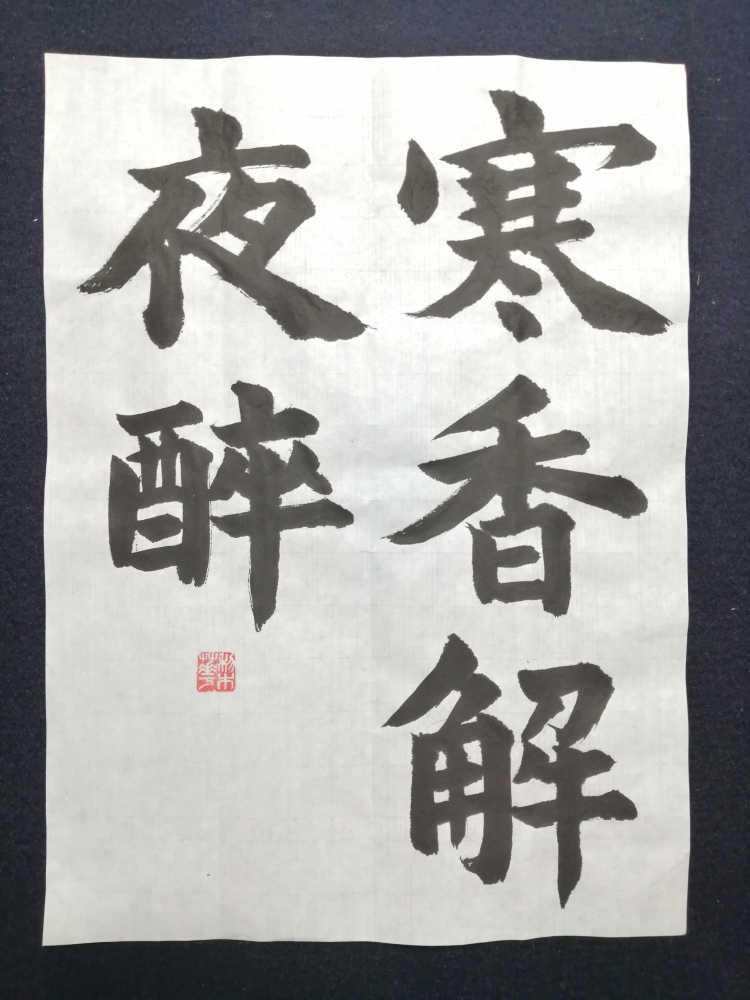 寒香解
夜醉